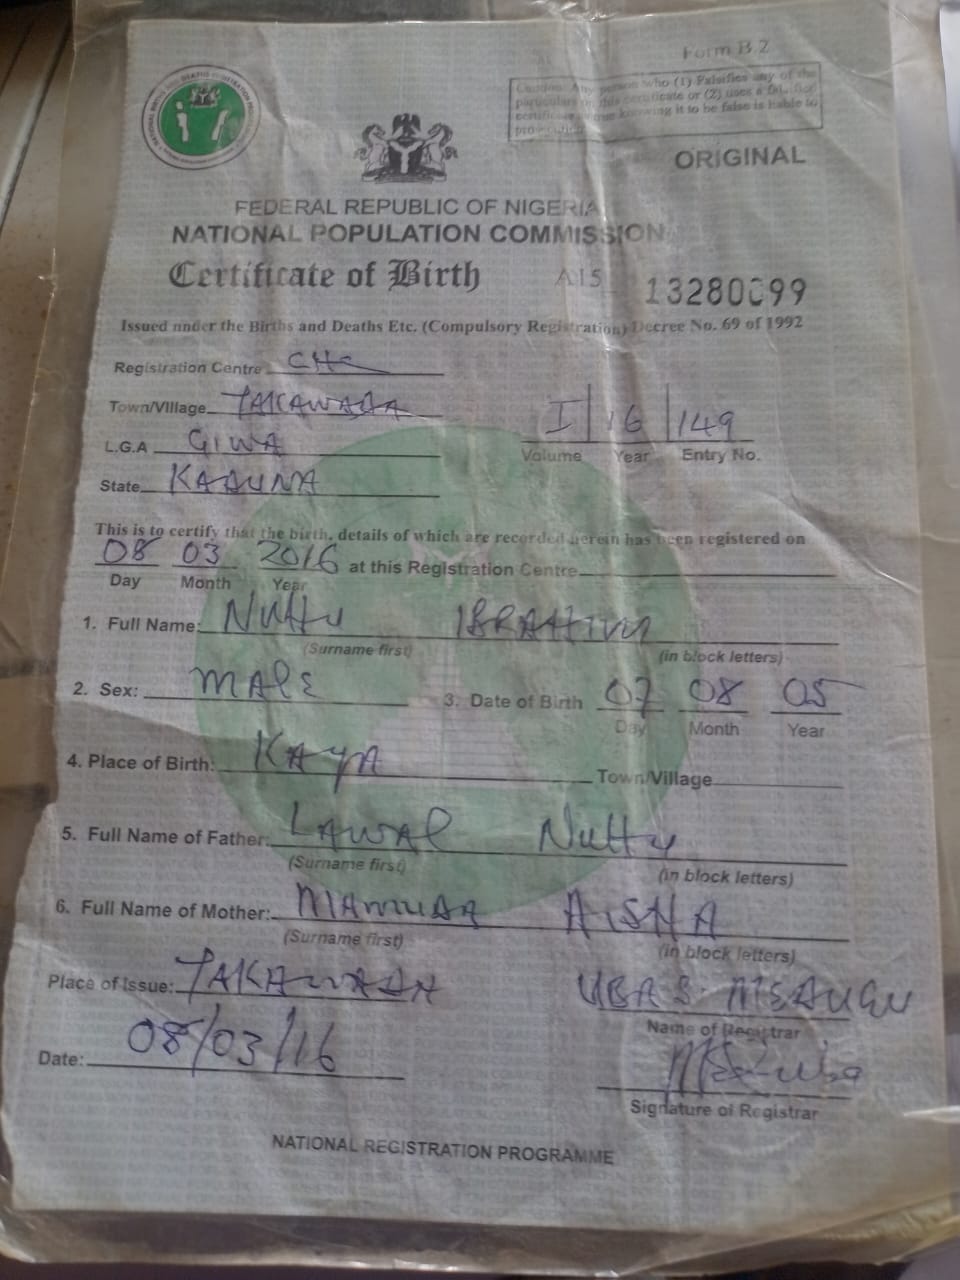 Form B.2
Caution: Any person who (1) Falsifies any of the
particulars on this certificate or (2) uses a falsified
certificate knowing it to be false is liable to
prosecution
ORIGINAL
FEDERAL REPUBLIC OF NIGERIA
NATIONAL POPULATION COMMISSION
Certificate of Birth A15 13280099
Issued under the Births and Deaths Etc. (Compulsory Registration) Decree No. 69 of 1992
Registration Centre CHC
Town/Village TAKAWADA
L.G.A GIWA
I 16 149
Volume Year Entry No.
State KADUNA
This is to certify that the birth, details of which are recorded herein has been registered on
08 03 2016 at this Registration Centre
Day Month Year
1. Full Name: Nuttu IBRAHIM
(Surname first) (in block letters)
2. Sex: MALE 3. Date of Birth 07 08 05
Day Month Year
4. Place of Birth: KAYA Town/Village
5. Full Name of Father: LAWAL Nuttu
(Surname first) (in block letters)
6. Full Name of Mother: MAMUDA AISHA
(Surname first) (in block letters)
Place of Issue: TAKAWADA UBA S.
Name of Registrar
Date: 08/03/16
Signature of Registrar
NATIONAL REGISTRATION PROGRAMME